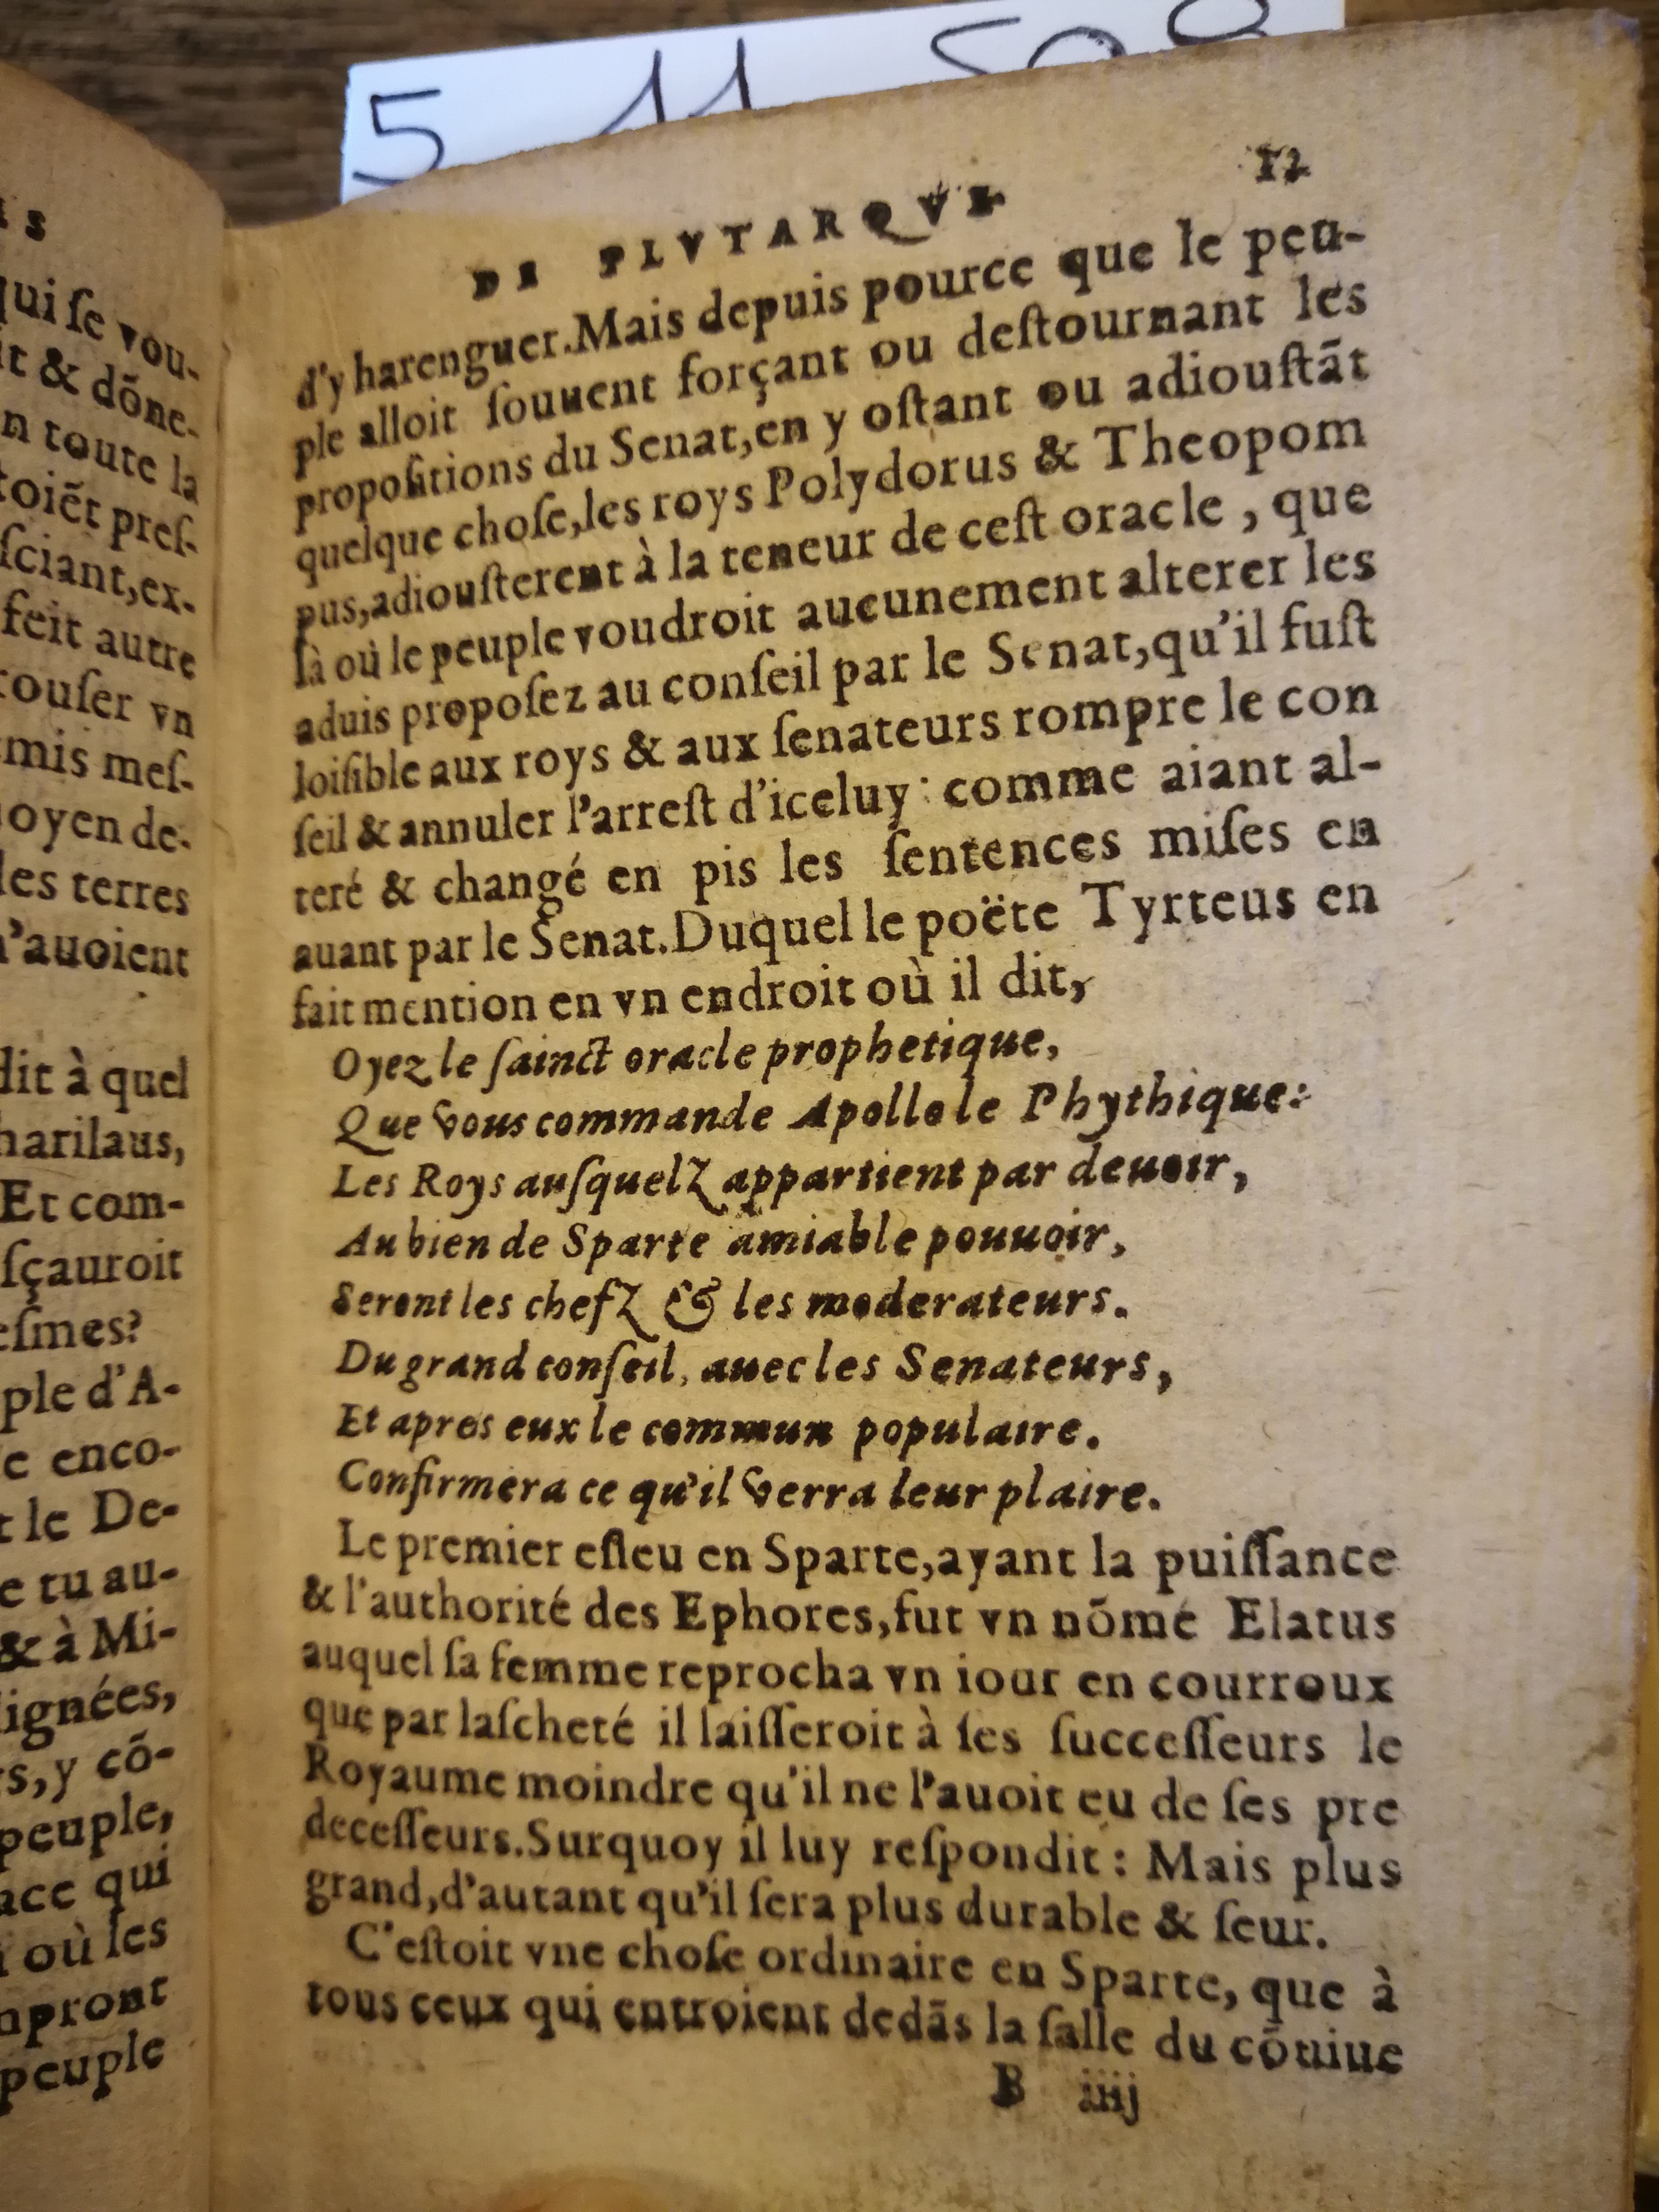 5 11 508
s
qui ſe vou-
it & dõne-
n toute la
toiẽt preſ-
ſciant,ex-
feit autre
touſer vn
mis meſ-
oyen de-
les terres
n'auoient
dit à quel
harilaus,
Et com-
ſçauroit
eſmes?
ple d'A-
e enco-
t le De-
e tu au-
& à Mi-
lignées,
s, y cõ-
peuple,
ace qui
où ſes
mpront
peuple
DE PLVTARQVE 12
d'y harenguer.Mais depuis pource que le peu-
ple alloit ſouuent forçant ou deſtournant les
propoſitions du Senat,en y oſtant ou adiouſtãt
quelque choſe,les roys Polydorus & Theopom
pus,adiouſterent à la teneur de ceſt oracle , que
là où le peuple voudroit aucunement alterer les
aduis propoſez au conſeil par le Senat,qu'il fuſt
loiſible aux roys & aux ſenateurs rompre le con
ſeil & annuler l'arreſt d'iceluy : comme aiant al-
teré & changé en pis les ſentences miſes en
auant par le Senat.Duquel le poëte Tyrteus en
fait mention en vn endroit où il dit,
Oyez le ſainct oracle prophetique,
Que vous commande Apollo le Phythique:
Les Roys auſquelz appartient par deuoir,
Au bien de Sparte amiable pouuoir,
Seront les chefz & les moderateurs.
Du grand conſeil, auec les Senateurs,
Et apres eux le commun populaire.
Confirmera ce qu'il verra leur plaire.
Le premier eſleu en Sparte,ayant la puiſſance
& l'authorité des Ephores,fut vn nõmé Elatus
auquel ſa femme reprocha vn iour en courroux
que par laſcheté il laiſſeroit à ſes ſucceſſeurs le
Royaume moindre qu'il ne l'auoit eu de ſes pre
deceſſeurs.Surquoy il luy reſpondit : Mais plus
grand,d'autant qu'il ſera plus durable & ſeur.
C'eſtoit vne choſe ordinaire en Sparte, que à
tous ceux qui entroient dedãs la ſalle du cõuiue
B iiij